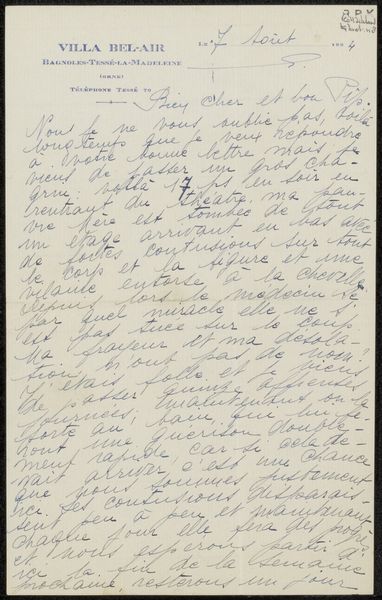 VILLA BEL-AIR
BAGNOLES-TESSÉ-LA-MADELEINE
(ORNE)
TÉLÉPHONE TESSÉ 70
LE 7 Août 1934
Bien cher et bon Pip.
Nous ne vous oublie pas, voilà
longtemps que je veux répondre
à votre bonne lettre mais je
viens de passer un gros cha-
grin: voilà 17 jrs un soir en
rentrant du théâtre, ma pau-
vre Mère est tombée de tout
un étage arrivant en bas avec
de fortes contusions sur tout
le corps et la figure et une
vilaine entorse à la cheville
depuis lors le médecin
par quel miracle elle ne s'
est pas tuée sur le coup.
Ma frayeur et ma désola-
tion n'ont pas de nom!
J'étais folle et je viens
de passer quinze affreuses
journées; maintenant on la
porte au bain qui lui
une guérison double-
ment rapide car si cela de-
vait arriver c'est une chance
que nous sommes justement
ici. Ses contusions disparais-
sent peu à peu et maintenant
chaque jour elle fera des progrès
et nous espérons partir d'
ici la fin de la semaine
prochaine, resterons un jour